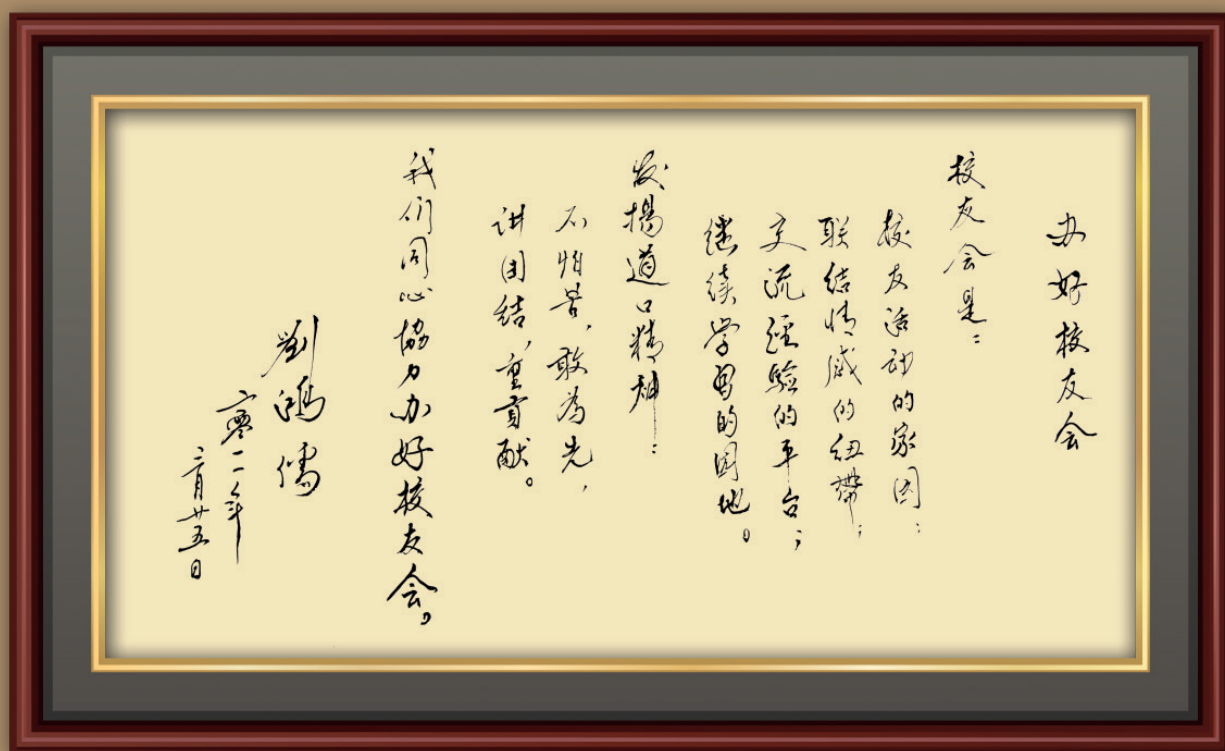 办好校友会
校友会是：
校友活动的家园；
联结情感的纽带；
交流经验的平台；
继续学习的园地。
发揚道口精神：
不怕苦，敢为先，
讲团结，重贡献。
我们同心协力办好校友会。
劉鸿儒
二零一一年
二月廿五日